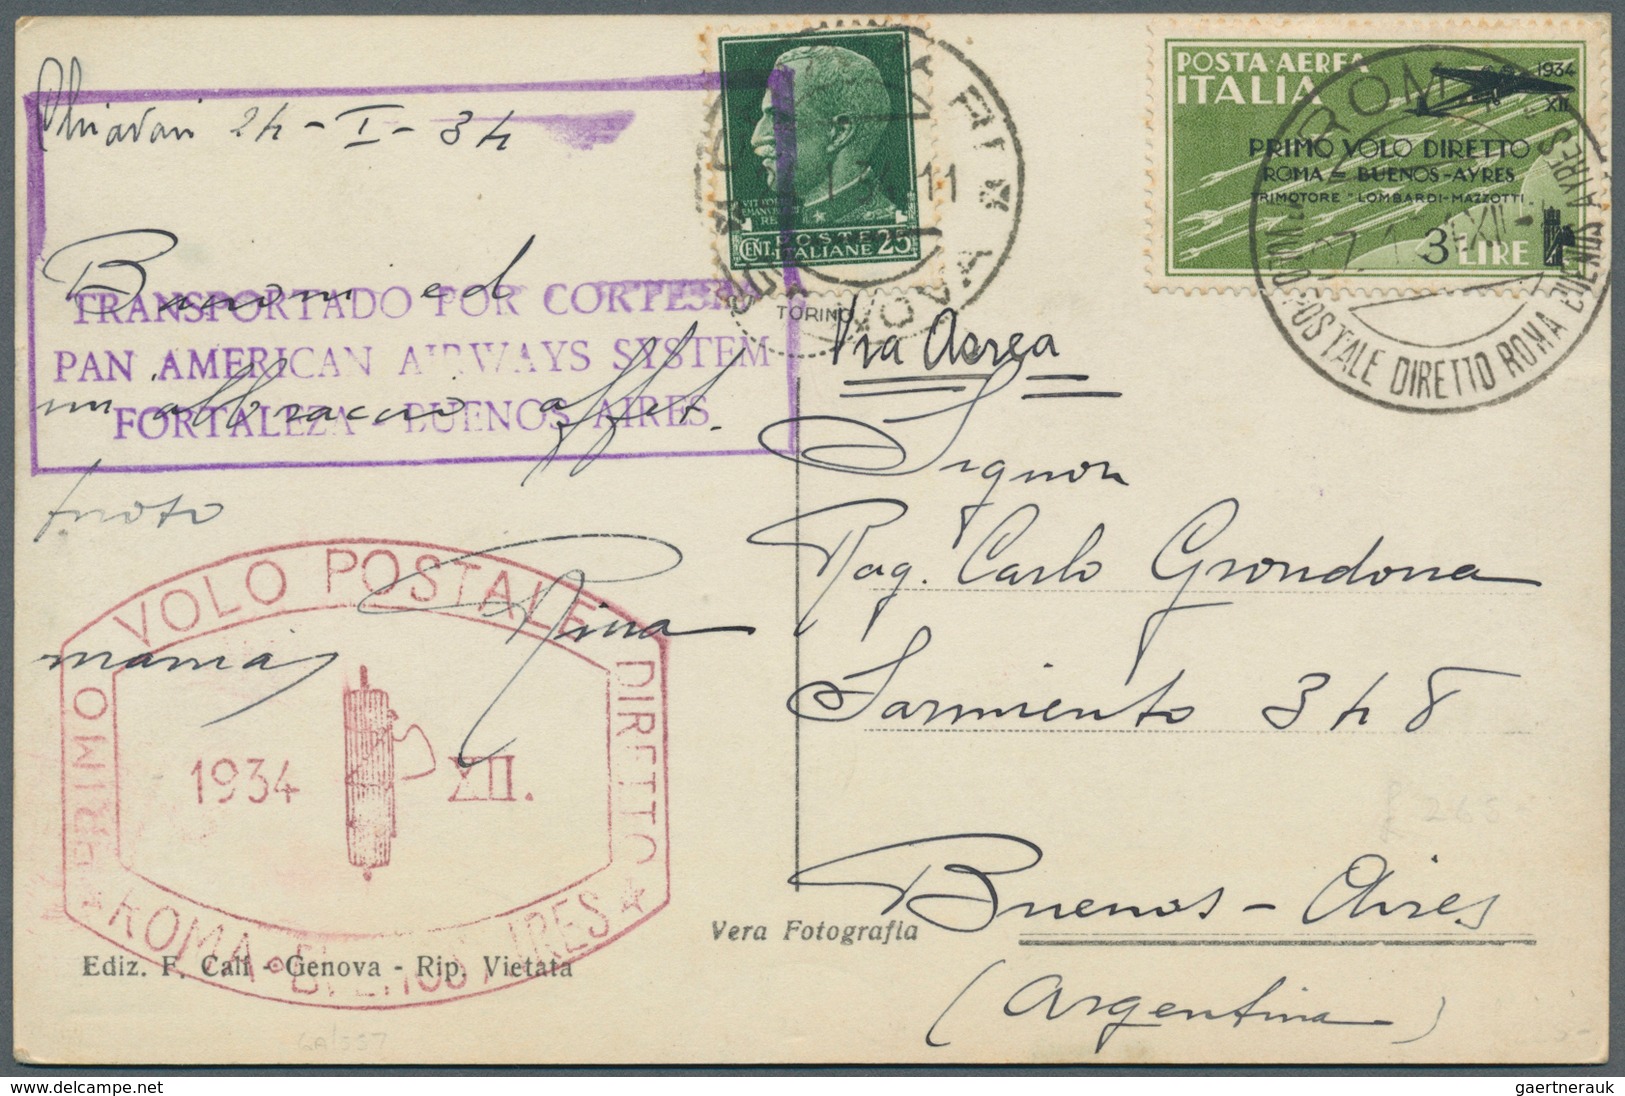 Chiavari 24-I-34
Bacioni ed
un abbraccio affet.
mamma
Rina
TRANSPORTADO POR CORTESIA
PAN AMERICAN AIRWAYS SYSTEM
FORTALEZA - BUENOS AIRES
PRIMO VOLO POSTALE DIRETTO
1934 XII.
* ROMA · BUENOS AIRES *
Ediz. F. Calì - Genova - Rip. Vietata
Vera Fotografia
VIT
EMANUE
RE
POSTE
CENT. ITALIANE 25
11
TORINO
POSTA AEREA
ITALIA
1934
XII
PRIMO VOLO DIRETTO
ROMA = BUENOS-AYRES
TRIMOTORE "LOMBARDI-MAZZOTTI
3 LIRE
ROMA
POSTALE DIRETTO ROMA BUENOS AYRES
Via Aerea
Signor
Rag. Carlo Grondona
Sarmiento 348
Buenos-Aires
(Argentina)
gaertnerauk | delcampe.net